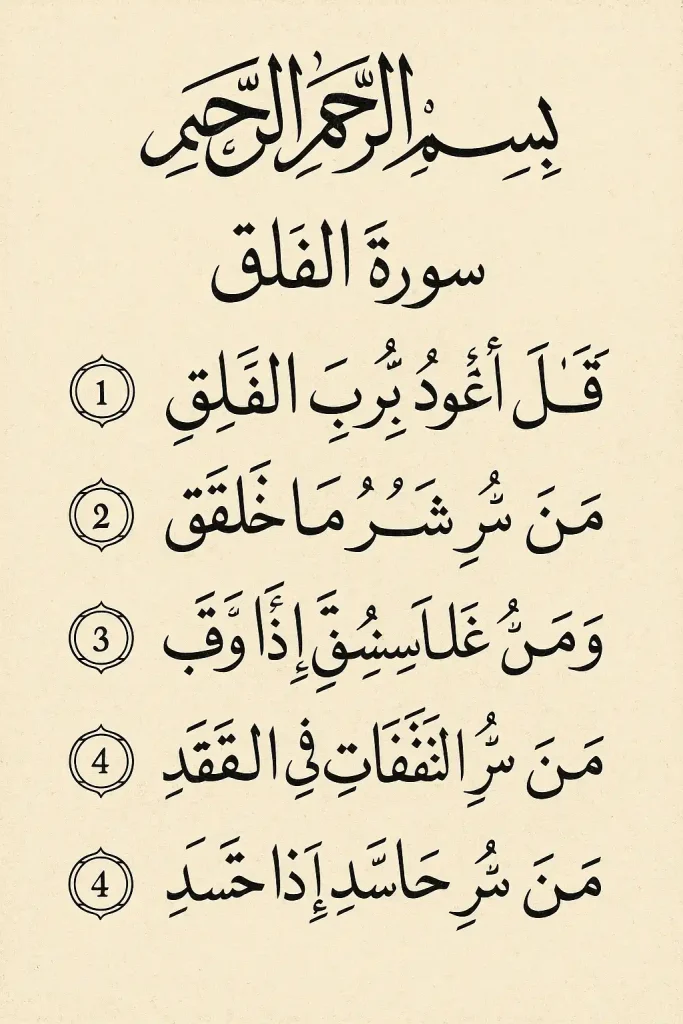 بِسِمْ الرَّحَمَٰرِ الرَّحِيمِ
سورةَ الفَلق
قَٰلَ أَعُودُ بُّرِبَ الفَّلِقِ 1
مَنَ شُّرِ شَُرُ مَا خَلقَق 2
وَمَنُّ غَلاَسِنسُِقَِّ إِذَٔا وَّقَب 3
مَنَ سُّرِ النَقَفَاتِ فِي القَقَدِ 4
مَنَ سُّرِ حَاسَّدِ إِذَا حَّسَدِ 4